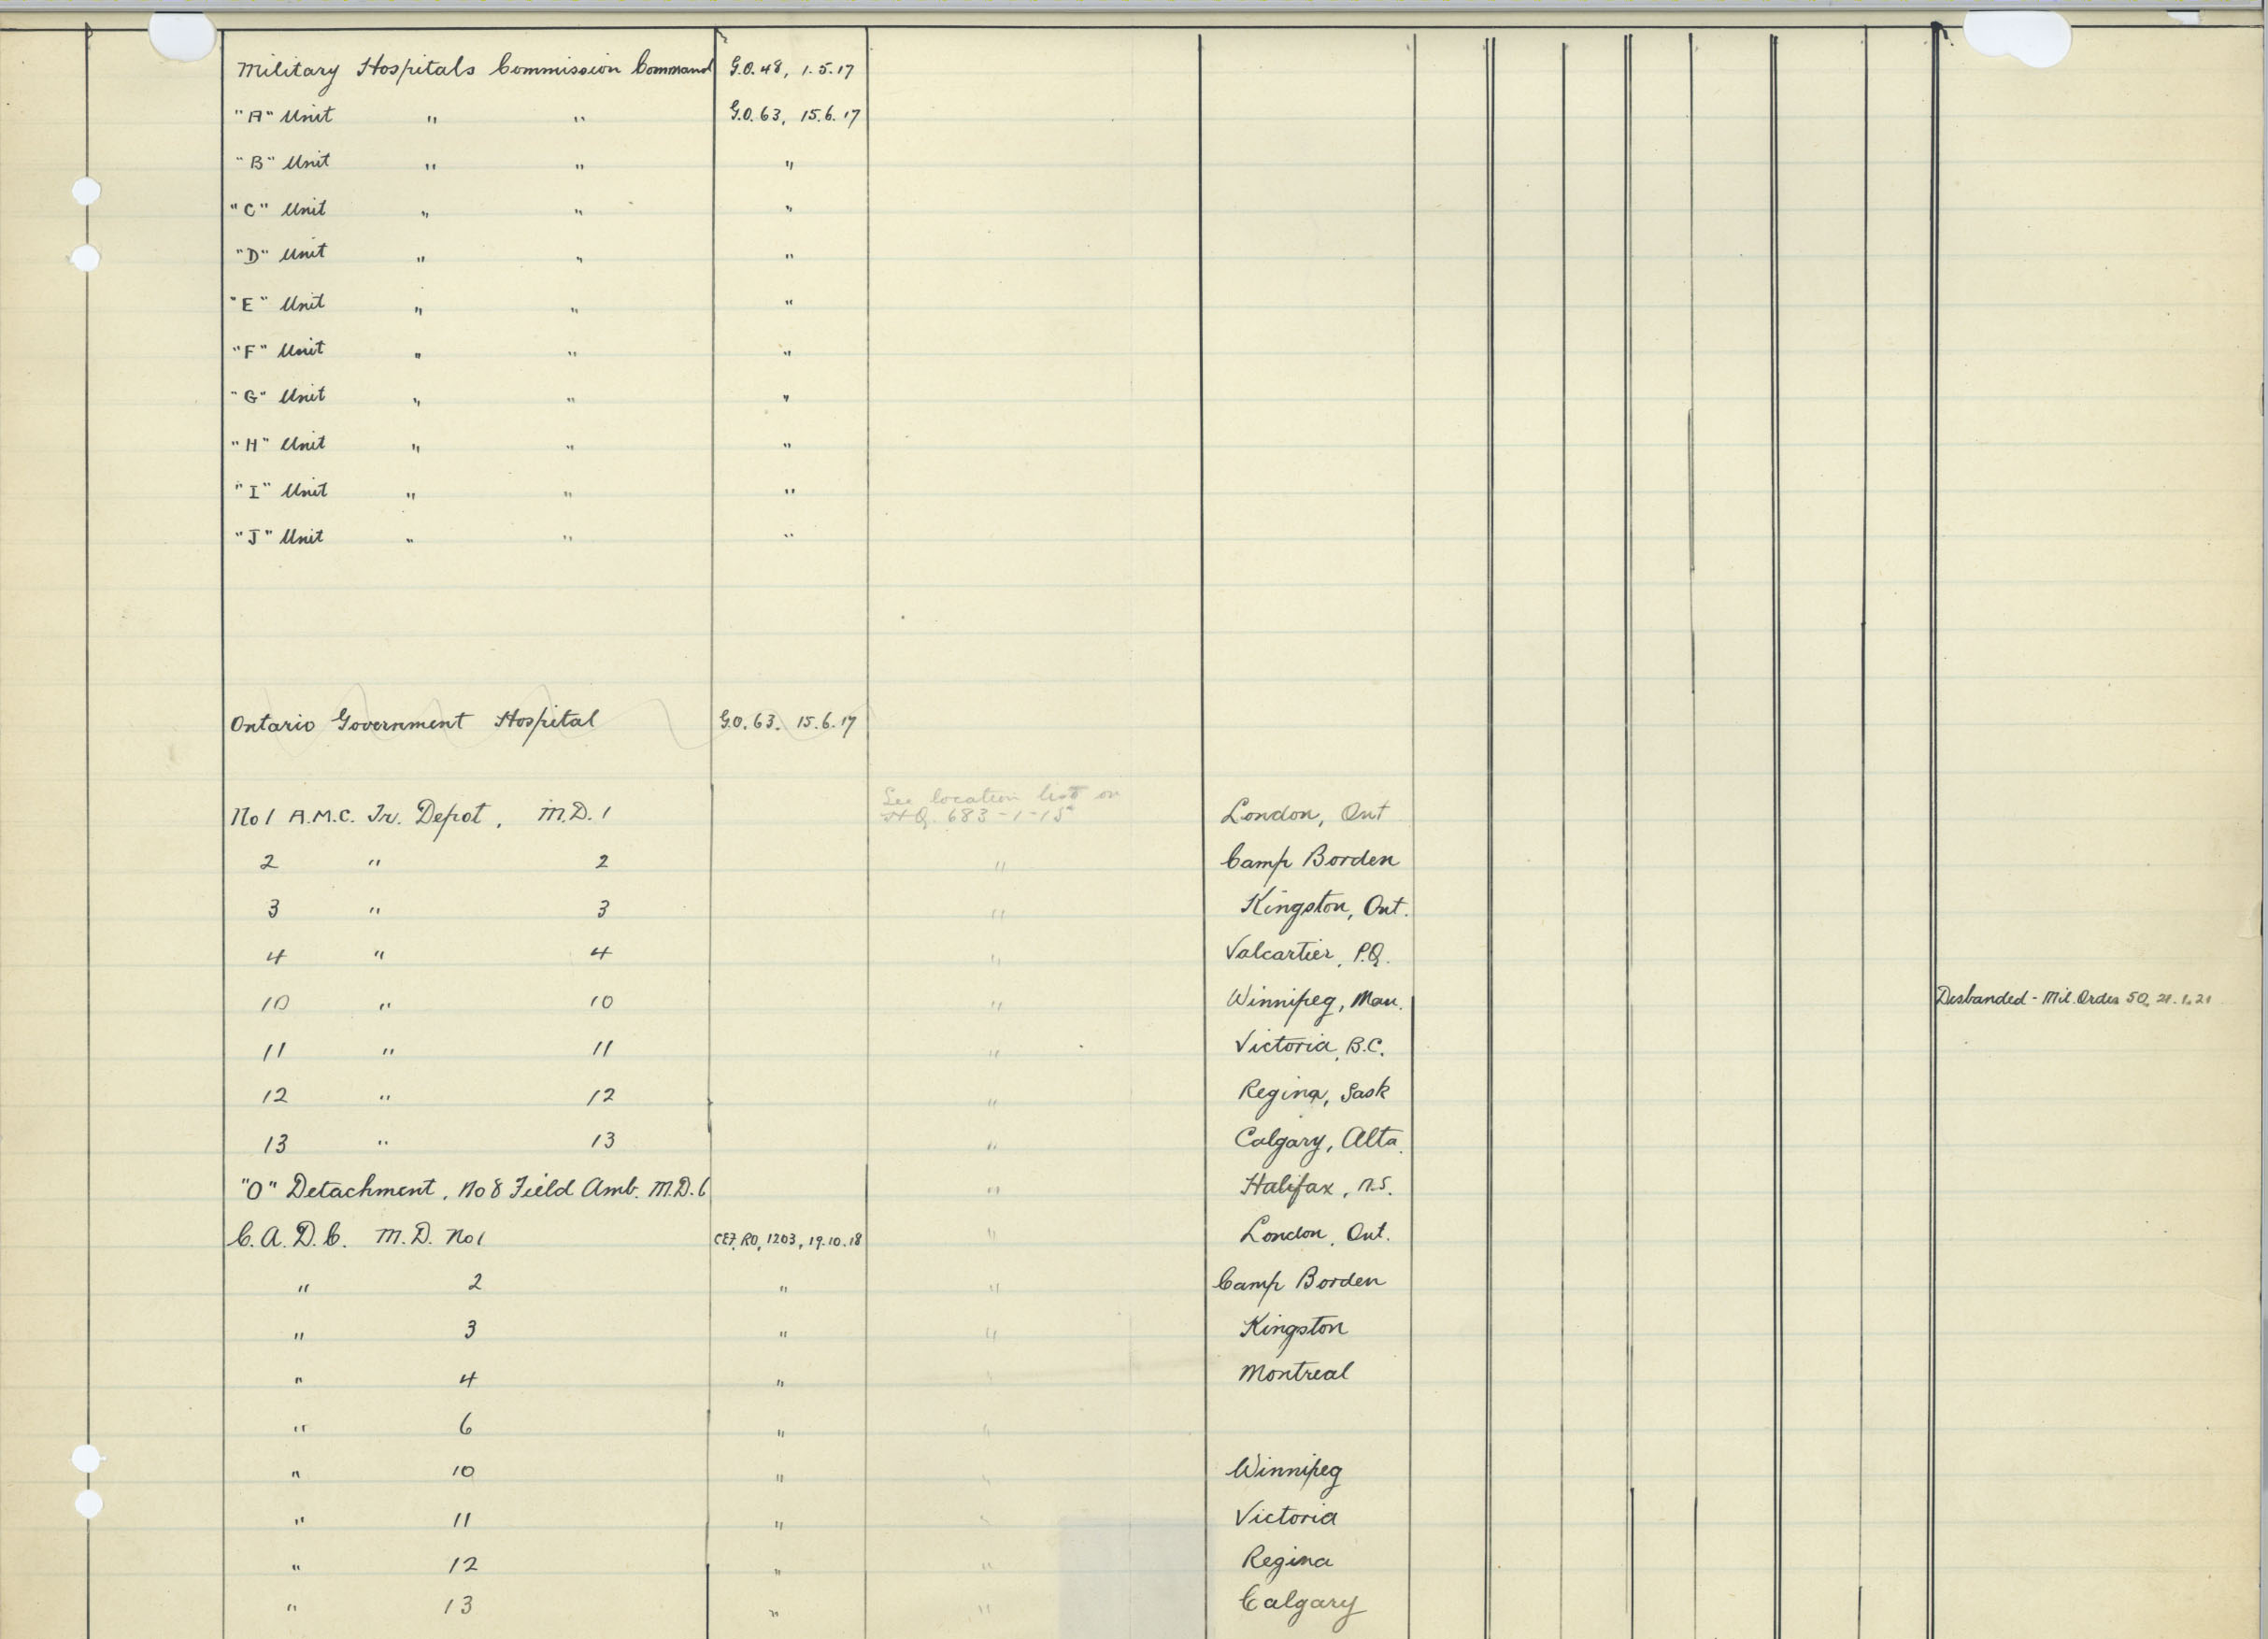 Military Hospitals Commission Command G.O. 48, 1.5.17
"A" Unit " " G.O. 63, 15.6.17
"B" Unit " " "
"C" Unit " " "
"D" Unit " " "
"E" Unit " " "
"F" Unit " " "
"G" Unit " " "
"H" Unit " " "
"I" Unit " " "
"J" Unit " " "
Ontario Government Hospital G.O. 63. 15.6.17
See location list on
No 1 A.M.C. Tr. Depot, M.D. 1 H.Q. 683-1-15 London, Ont
2 " 2 " Camp Borden
3 " 3 " Kingston, Ont.
4 " 4 " Valcartier, P.Q.
10 " 10 " Winnipeg, Man. Disbanded - Mil. Order 50, 21.1.21
11 " 11 " Victoria, B.C.
12 " 12 " Regina, Sask
13 " 13 " Calgary, Alta.
"O" Detachment, No 8 Field Amb. M.D. 6 " Halifax, N.S.
C.A.D.C. M.D. No 1 CEF, RO, 1203, 19.10.18 " London, Ont.
" 2 " " Camp Borden
" 3 " " Kingston
" 4 " " Montreal
" 6 " "
" 10 " " Winnipeg
" 11 " " Victoria
" 12 " " Regina
" 13 " " Calgary